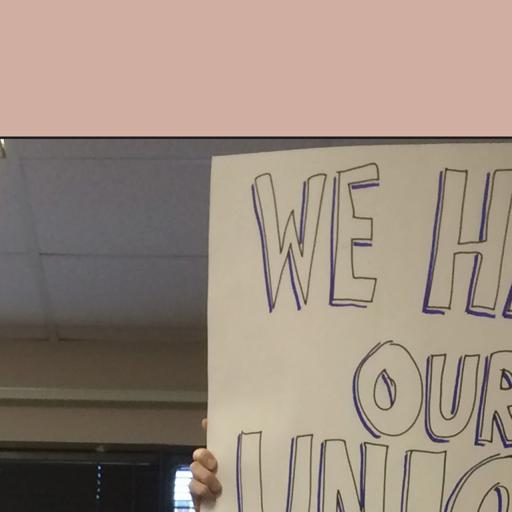 WE H
OUR
UNIO